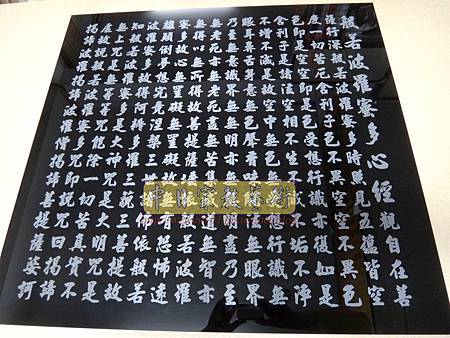 般若波羅蜜多心經觀自在菩
薩行深般若波羅蜜多時照見五蘊皆空
度一切苦厄舍利子色不異空空不異色
色即是空空即是色受想行識亦復如是
舍利子是諸法空相不生不滅不垢不淨
不增不減是故空中無色無受想行識無
眼耳鼻舌身意無色聲香味觸法無眼界
乃至無意識界無無明亦無無明盡乃至
無老死亦無老死盡無苦集滅道無智亦
無得以無所得故菩提薩埵依般若波羅
蜜多故心無罣礙無罣礙故無有恐怖遠
離顛倒夢想究竟涅槃三世諸佛依般若
波羅蜜多故得阿耨多羅三藐三菩提故
知般若波羅蜜多是大神咒是大明咒是
無上咒是無等等咒能除一切苦真實不
虛故說般若波羅蜜多咒即說咒曰揭諦
揭諦波羅揭諦波羅僧揭諦菩提薩婆訶